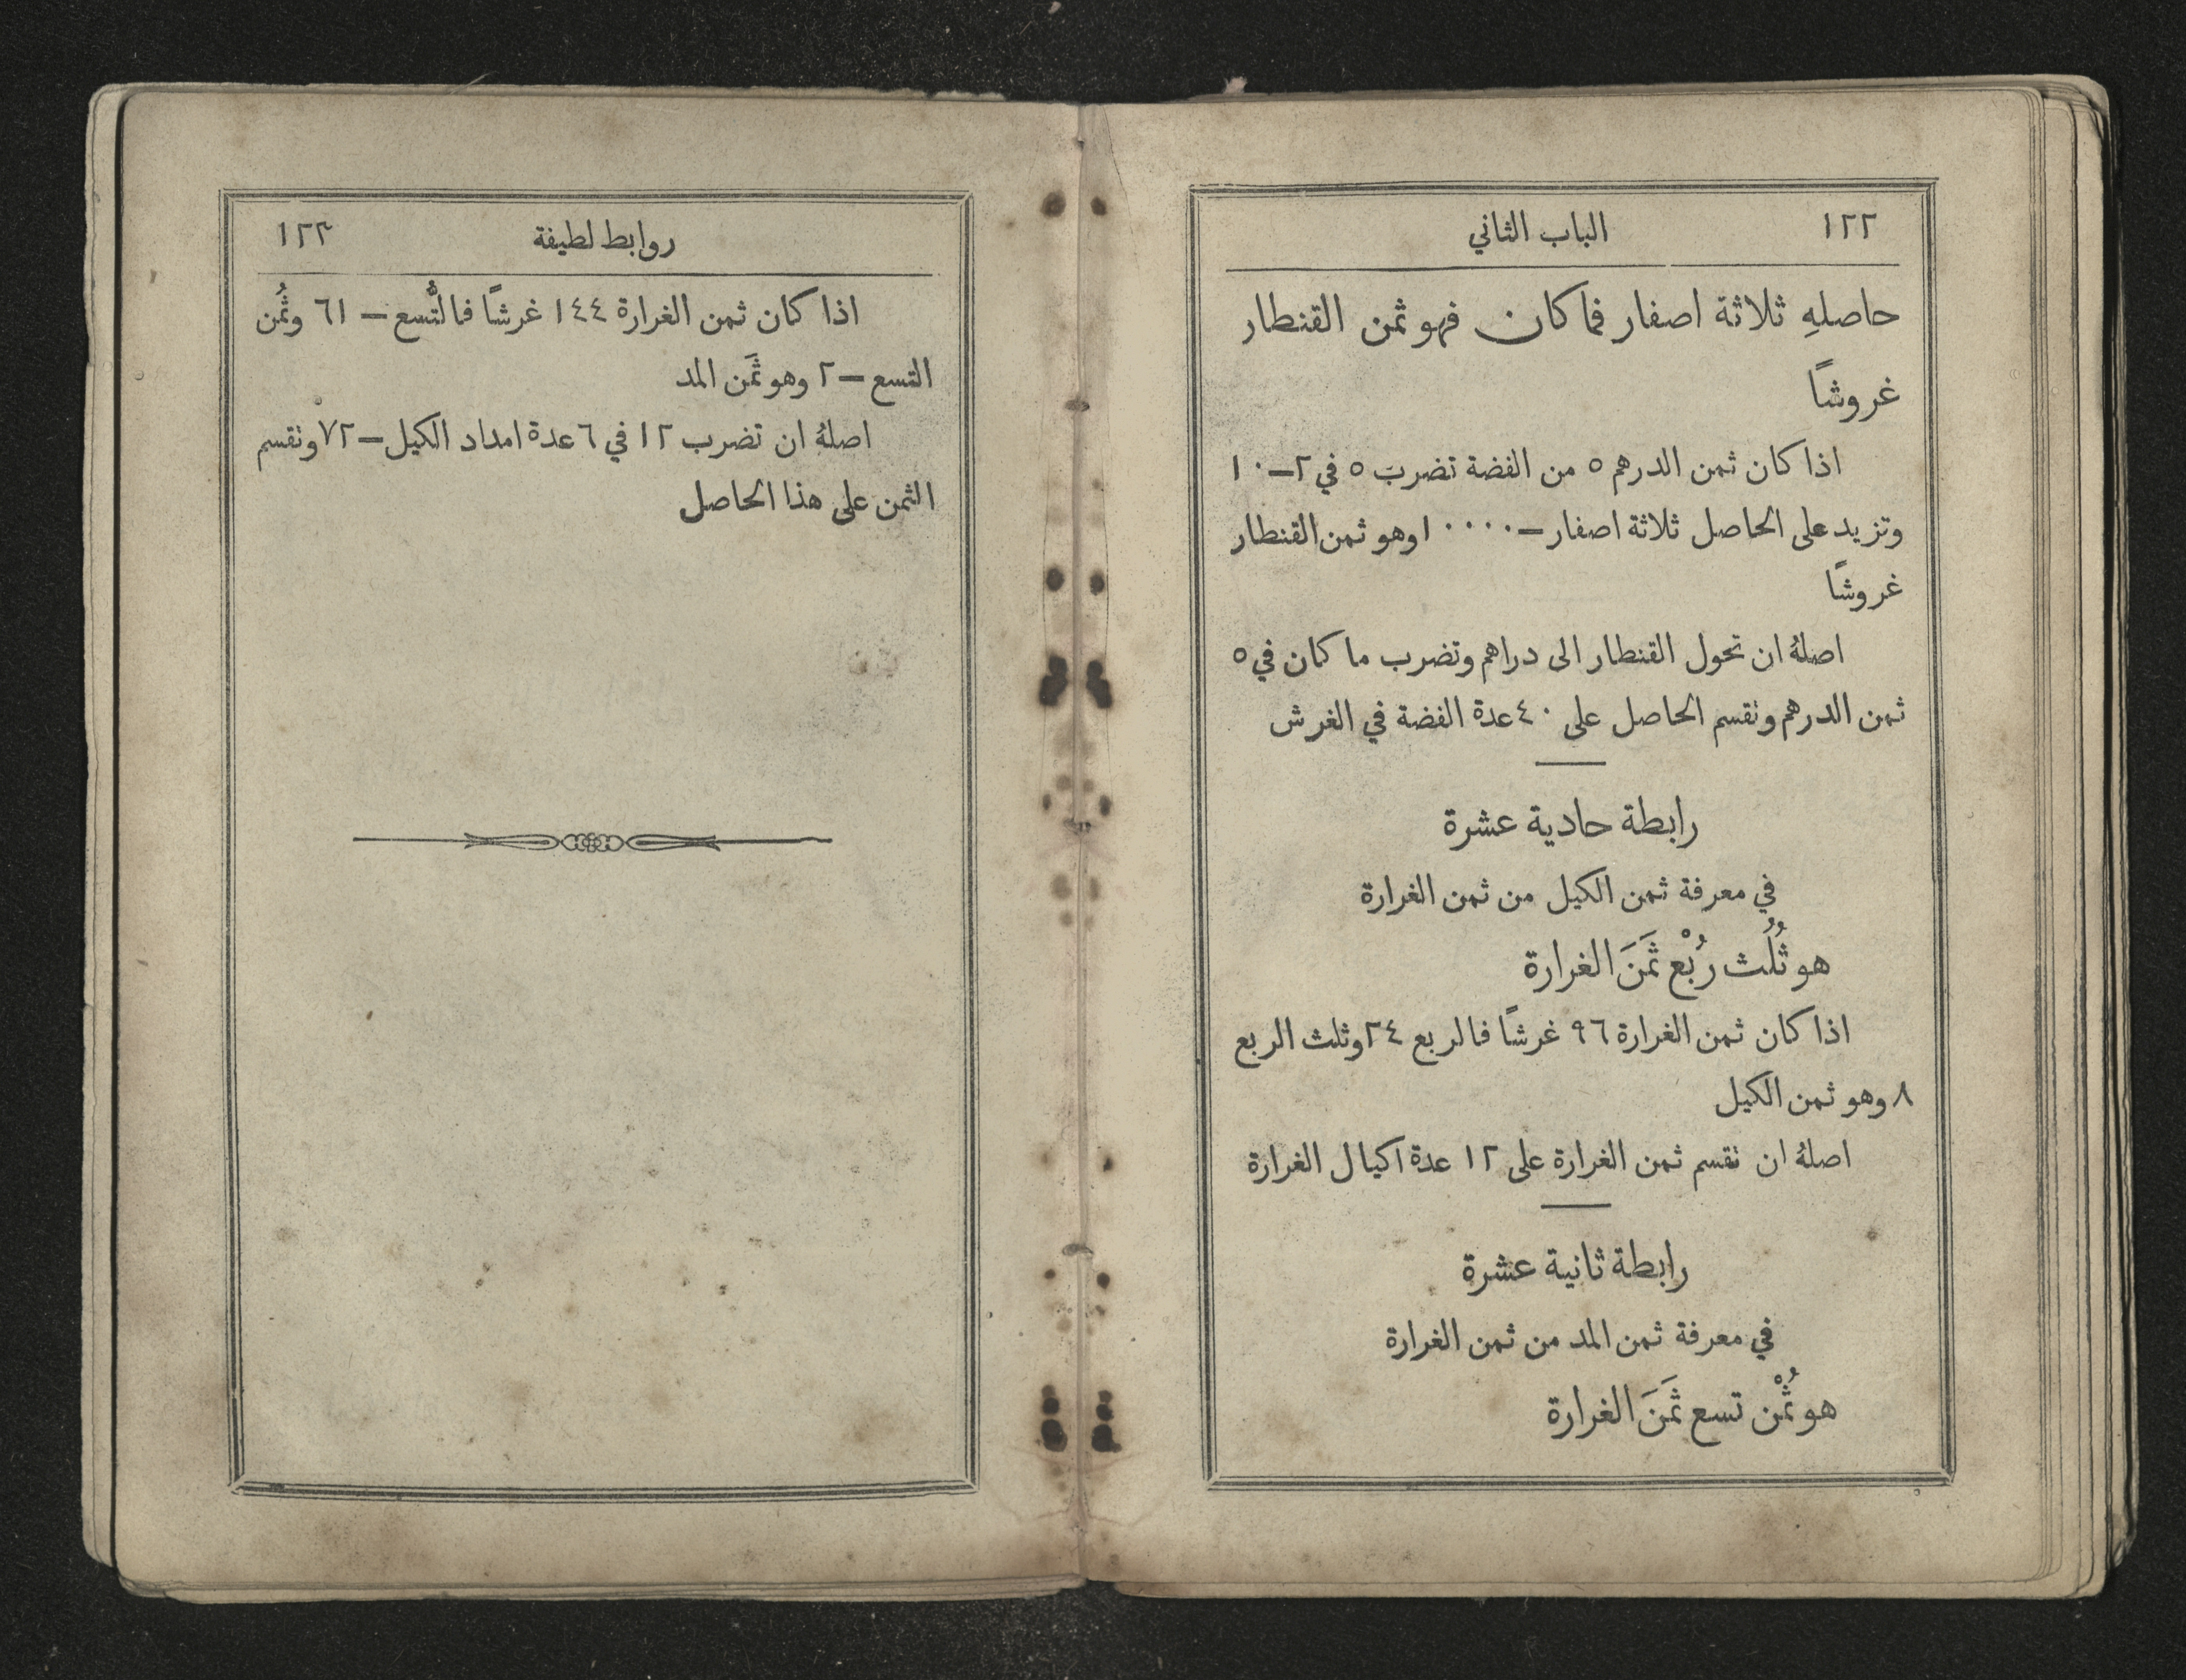 ١٢٢ الباب الثاني
حاصلهِ ثلاثة اصفار فما كان فهو ثمن القنطار
غروشًا
اذا كان ثمن الدرهم ٥ من الفضة تضرب ٥ في ٢ــ ١٠
وتزيد على الحاصل ثلاثة اصفار ــ ١٠٠٠٠ وهو ثمن القنطار
غروشًا
اصلهُ ان تحول القنطار الى دراهم وتضرب ما كان في ٥
ثمن الدرهم وتقسم الحاصل على ٤٠ عدة الفضة في الغرش
رابطة حادية عشرة
في معرفة ثمن الكيل من ثمن الغرارة
هو ثُلُث رُبْع ثَمَنَ الغرارة
اذا كان ثمن الغرارة ٩٦ غرشًا فالربع ٢٤ وثلث الربع
٨ وهو ثمن الكيل
اصلهُ ان تقسم ثمن الغرارة على ١٢ عدة اكيال الغرارة
رابطة ثانية عشرة
في معرفة ثمن المد من ثمن الغرارة
هو ثُمْن تسع ثَمَنَ الغرارة
روابط لطيفة ١٢٣
اذا كان ثمن الغرارة ١٤٤ غرشًا فالتُّسع ــ ١٦ وثُمن
التسع ــ ٢ وهو ثَمَن المد
اصلهُ ان تضرب ١٢ في ٦ عدة امداد الكيل ــ ٧٢ وتقسم
الثمن على هذا الحاصل